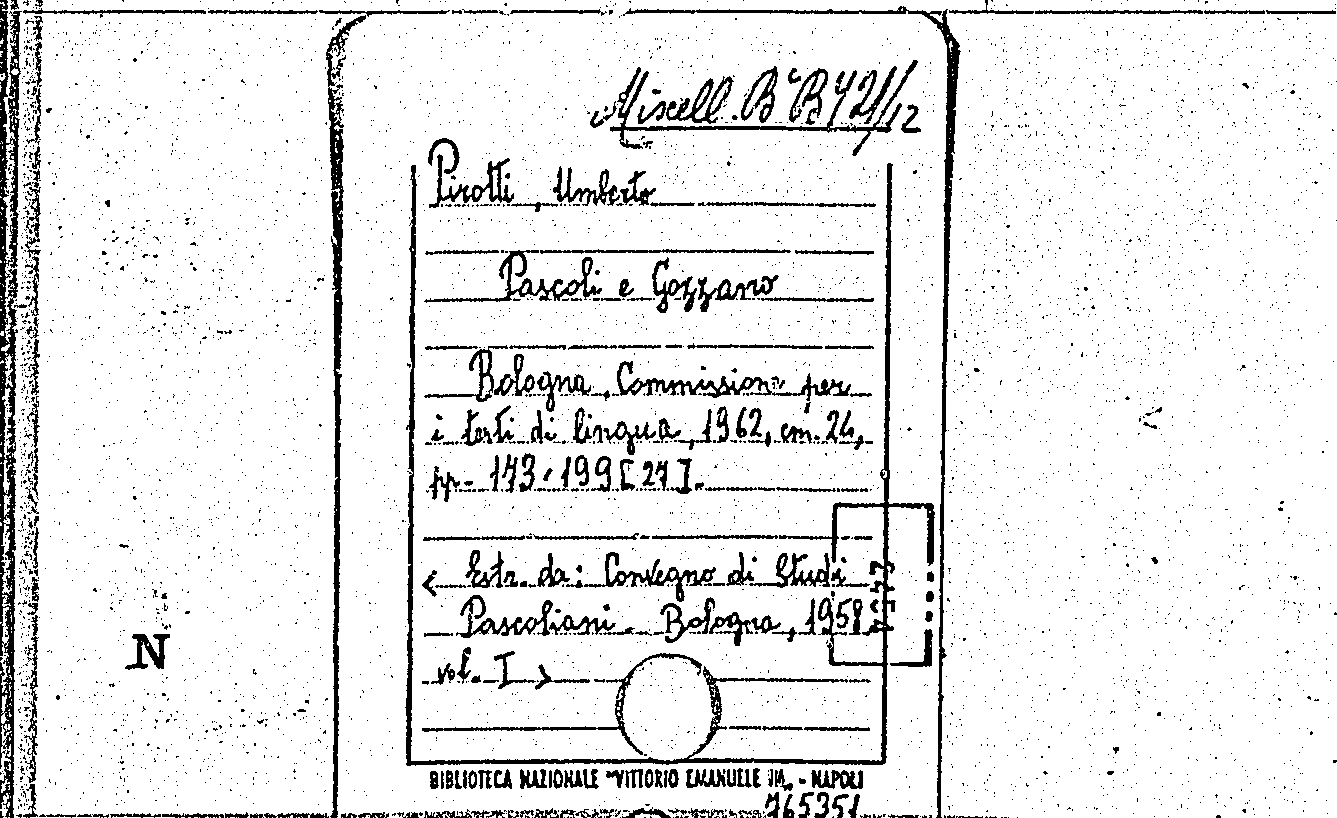 Miscell. Bc B 421/12
Pirotti, Umberto
Pascoli e Gozzano
Bologna, Commissione per
i testi di lingua, 1962, cm. 24,
pp. 173-199 [27].
< Estr. da: Convegno di Studi
Pascoliani. Bologna, 1958
vol. I >
N
BIBLIOTECA NAZIONALE "VITTORIO EMANUELE III„ - NAPOLI
765351